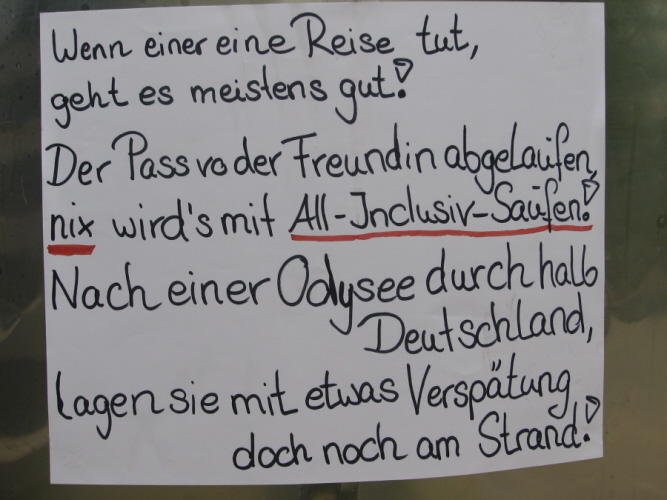 Wenn einer eine Reise tut,
geht es meistens gut!
Der Pass vo der Freundin abgelaufen,
nix wird's mit All-Inclusiv-Saufen!
Nach einer Odysee durch halb
Deutschland,
lagen sie mit etwas Verspätung
doch noch am Strand!